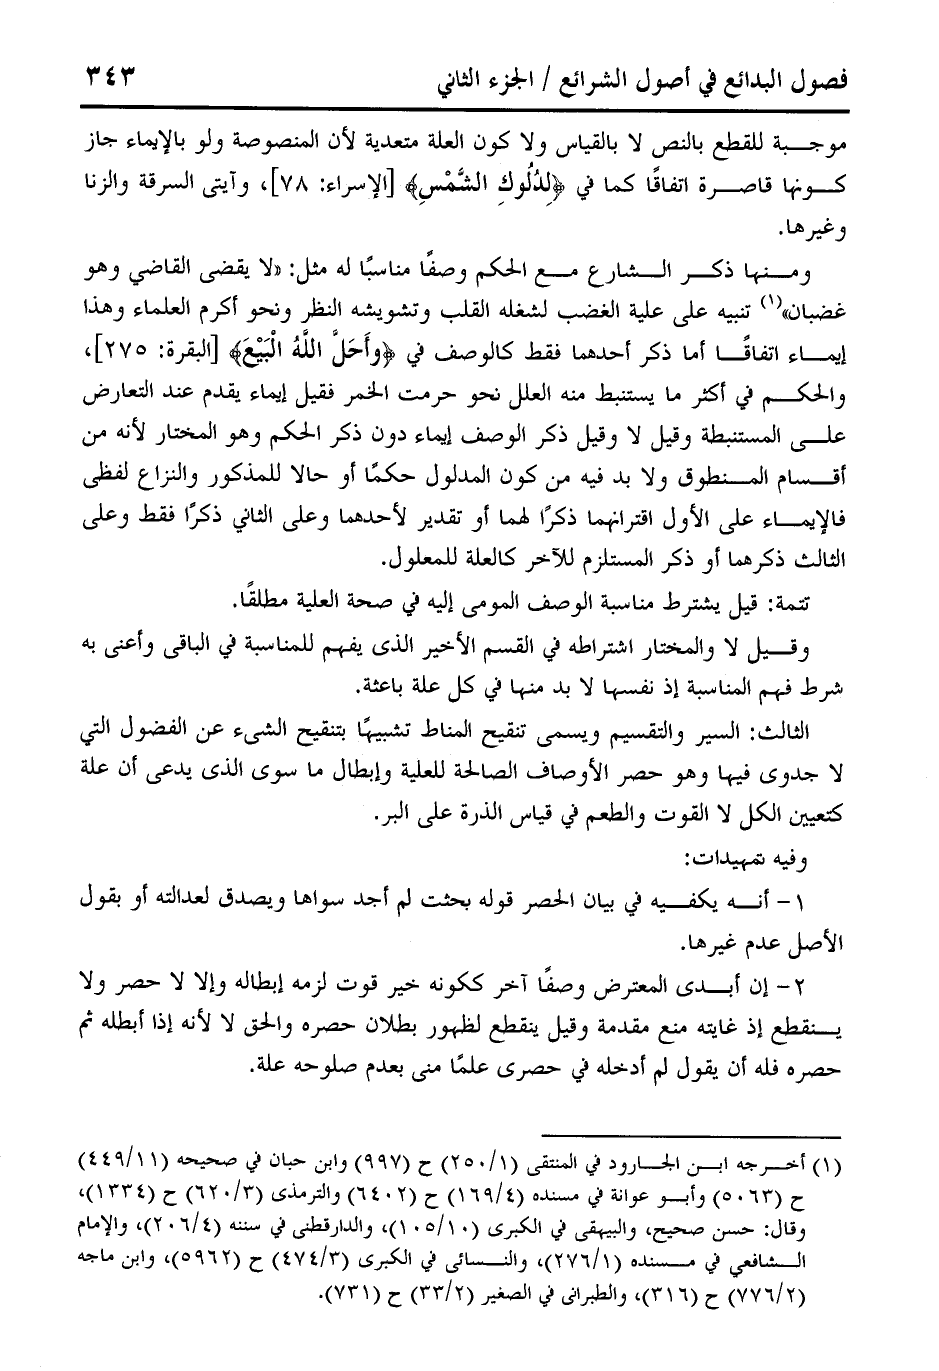 فصول البدائع في أصول الشرائع / الجزء الثاني ٣٤٣
موجـــبة للقطع بالنص لا بالقياس ولا كون العلة متعدية لأن المنصوصة ولو بالإيماء جاز
كـــونها قاصـــرة اتفاقًا كما في ﴿لِدُلُوكِ الشَّمْسِ﴾ [الإسراء: ٧٨]، وآيتى السرقة والزنا
وغيرها.
ومـــنها ذكـــر الـــشارع مـــع الحكم وصفًا مناسبًا له مثل: «لا يقضى القاضي وهو
غضبان»(١) تنبيه على علية الغضب لشغله القلب وتشويشه النظر ونحو أكرم العلماء وهذا
إيمـــاء اتفاقًـــا أما ذكر أحدهما فقط كالوصف في ﴿وَأَحَلَّ اللَّهُ الْبَيْعَ﴾ [البقرة: ٢٧٥]،
والحكـــم في أكثر ما يستنبط منه العلل نحو حرمت الخمر فقيل إيماء يقدم عند التعارض
علـــى المستنبطة وقيل لا وقيل ذكر الوصف إيماء دون ذكر الحكم وهو المختار لأنه من
أقـــسام المـــنطوق ولا بد فيه من كون المدلول حكمًا أو حالا للمذكور والنزاع لفظى
فالإيمـــاء على الأول اقترانهما ذكرًا لهما أو تقدير لأحدهما وعلى الثاني ذكرًا فقط وعلى
الثالث ذكرهما أو ذكر المستلزم للآخر كالعلة للمعلول.
تتمة: قيل يشترط مناسبة الوصف المومى إليه في صحة العلية مطلقًا.
وقـــيل لا والمختار اشتراطه في القسم الأخير الذى يفهم للمناسبة في الباقى وأعنى به
شرط فهم المناسبة إذ نفسها لا بد منها في كل علة باعثة.
الثالث: السير والتقسيم ويسمى تنقيح المناط تشبيهًا بتنقيح الشىء عن الفضول التي
لا جدوى فيها وهو حصر الأوصاف الصالحة للعلية وإبطال ما سوى الذى يدعى أن علة
كتعيين الكل لا القوت والطعم في قياس الذرة على البر.
وفيه تمهيدات:
١- أنـــه يكفـــيه في بيان الحصر قوله بحثت لم أجد سواها ويصدق لعدالته أو بقول
الأصل عدم غيرها.
٢- إن أبـــدى المعترض وصفًا آخر ككونه خير قوت لزمه إبطاله وإلا لا حصر ولا
يـــنقطع إذ غايته منع مقدمة وقيل ينقطع لظهور بطلان حصره والحق لا لأنه إذا أبطله ثم
حصره فله أن يقول لم أدخله في حصرى علمًا منى بعدم صلوحه علة.
(١) أخـــرجه ابـــن الجـــارود في المنتقى (٢٥٠/١) ح (٩٩٧) وابن حبان في صحيحه (٤٤٩/١١)
ح (٥٠٦٣) وأبـــو عوانة في مسنده (١٦٩/٤) ح (٦٤٠٢) والترمذى (٦٢٠/٣) ح (١٣٣٤)،
وقال: حسن صحيح، والبيهقى في الكبرى (١٠٥/١٠)، والدارقطنى في سننه (٢٠٦/٤)، والإمام
الـــشافعي في مـــسنده (٢٧٦/١)، والنـــسائى في الكبرى (٤٧٤/٣) ح (٥٩٦٢)، وابن ماجه
(٧٧٦/٢) ح (٣١٦)، والطبرانى في الصغير (٣٣/٢) ح (٧٣١).